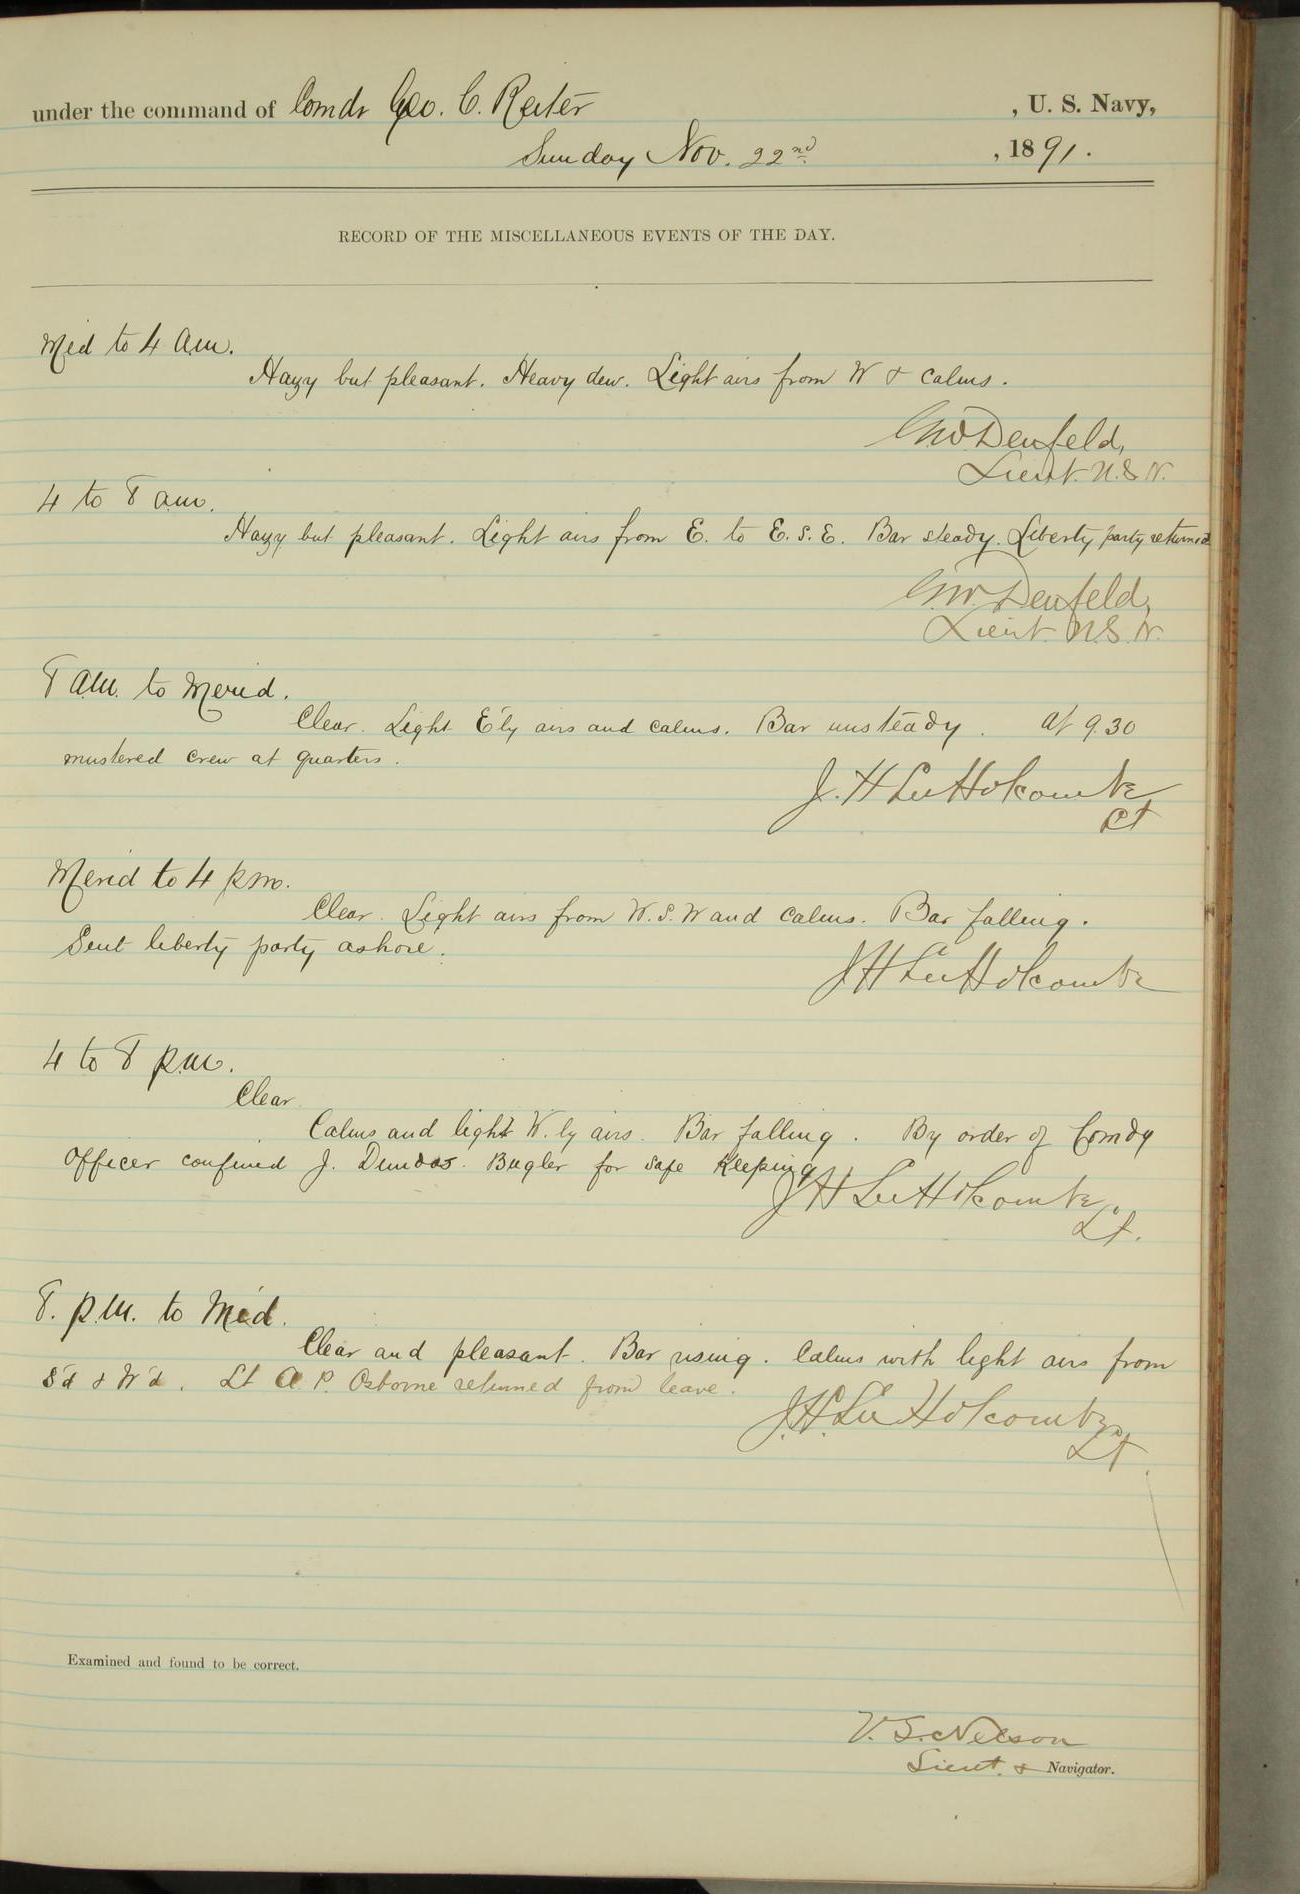 under the command of Comdr Geo. C. Reiter , U. S. Navy,
Sunday Nov. 22nd , 1891.
RECORD OF THE MISCELLANEOUS EVENTS OF THE DAY.
Mid to 4 a.m.
Hazy but pleasant. Heavy dew. Light airs from W & calms.
G.W. Denfeld,
Lieut. U.S.N.
4 to 8 a.m.
Hazy but pleasant. Light airs from E. to E.S.E. Bar steady. Liberty party returned
G.W. Denfeld,
Lieut. U.S.N.
8 A.M. to Merid.
Clear. Light E'ly airs and calms. Bar unsteady. At 9.30
mustered crew at quarters.
J. H Lee Holcombe
Lt
Merid to 4 p.m.
Clear. Light airs from W.S.W and calms. Bar falling.
Sent liberty party ashore.
J H Lee Holcombe
4 to 8 p.m.
Clear
Calms and light W.ly airs. Bar falling. By order of Comdg
officer confined J. Dundas. Bugler for safe keeping.
J H Lee Holcombe,
Lt.
8. p.m. to Mid.
Clear and pleasant. Bar rising. Calms with light airs from
S'd & W'd. Lt A. P. Osborne returned from leave.
J. H. Lee Holcombe
Lt.
Examined and found to be correct.
V. S. Nelson
Lieut. & Navigator.